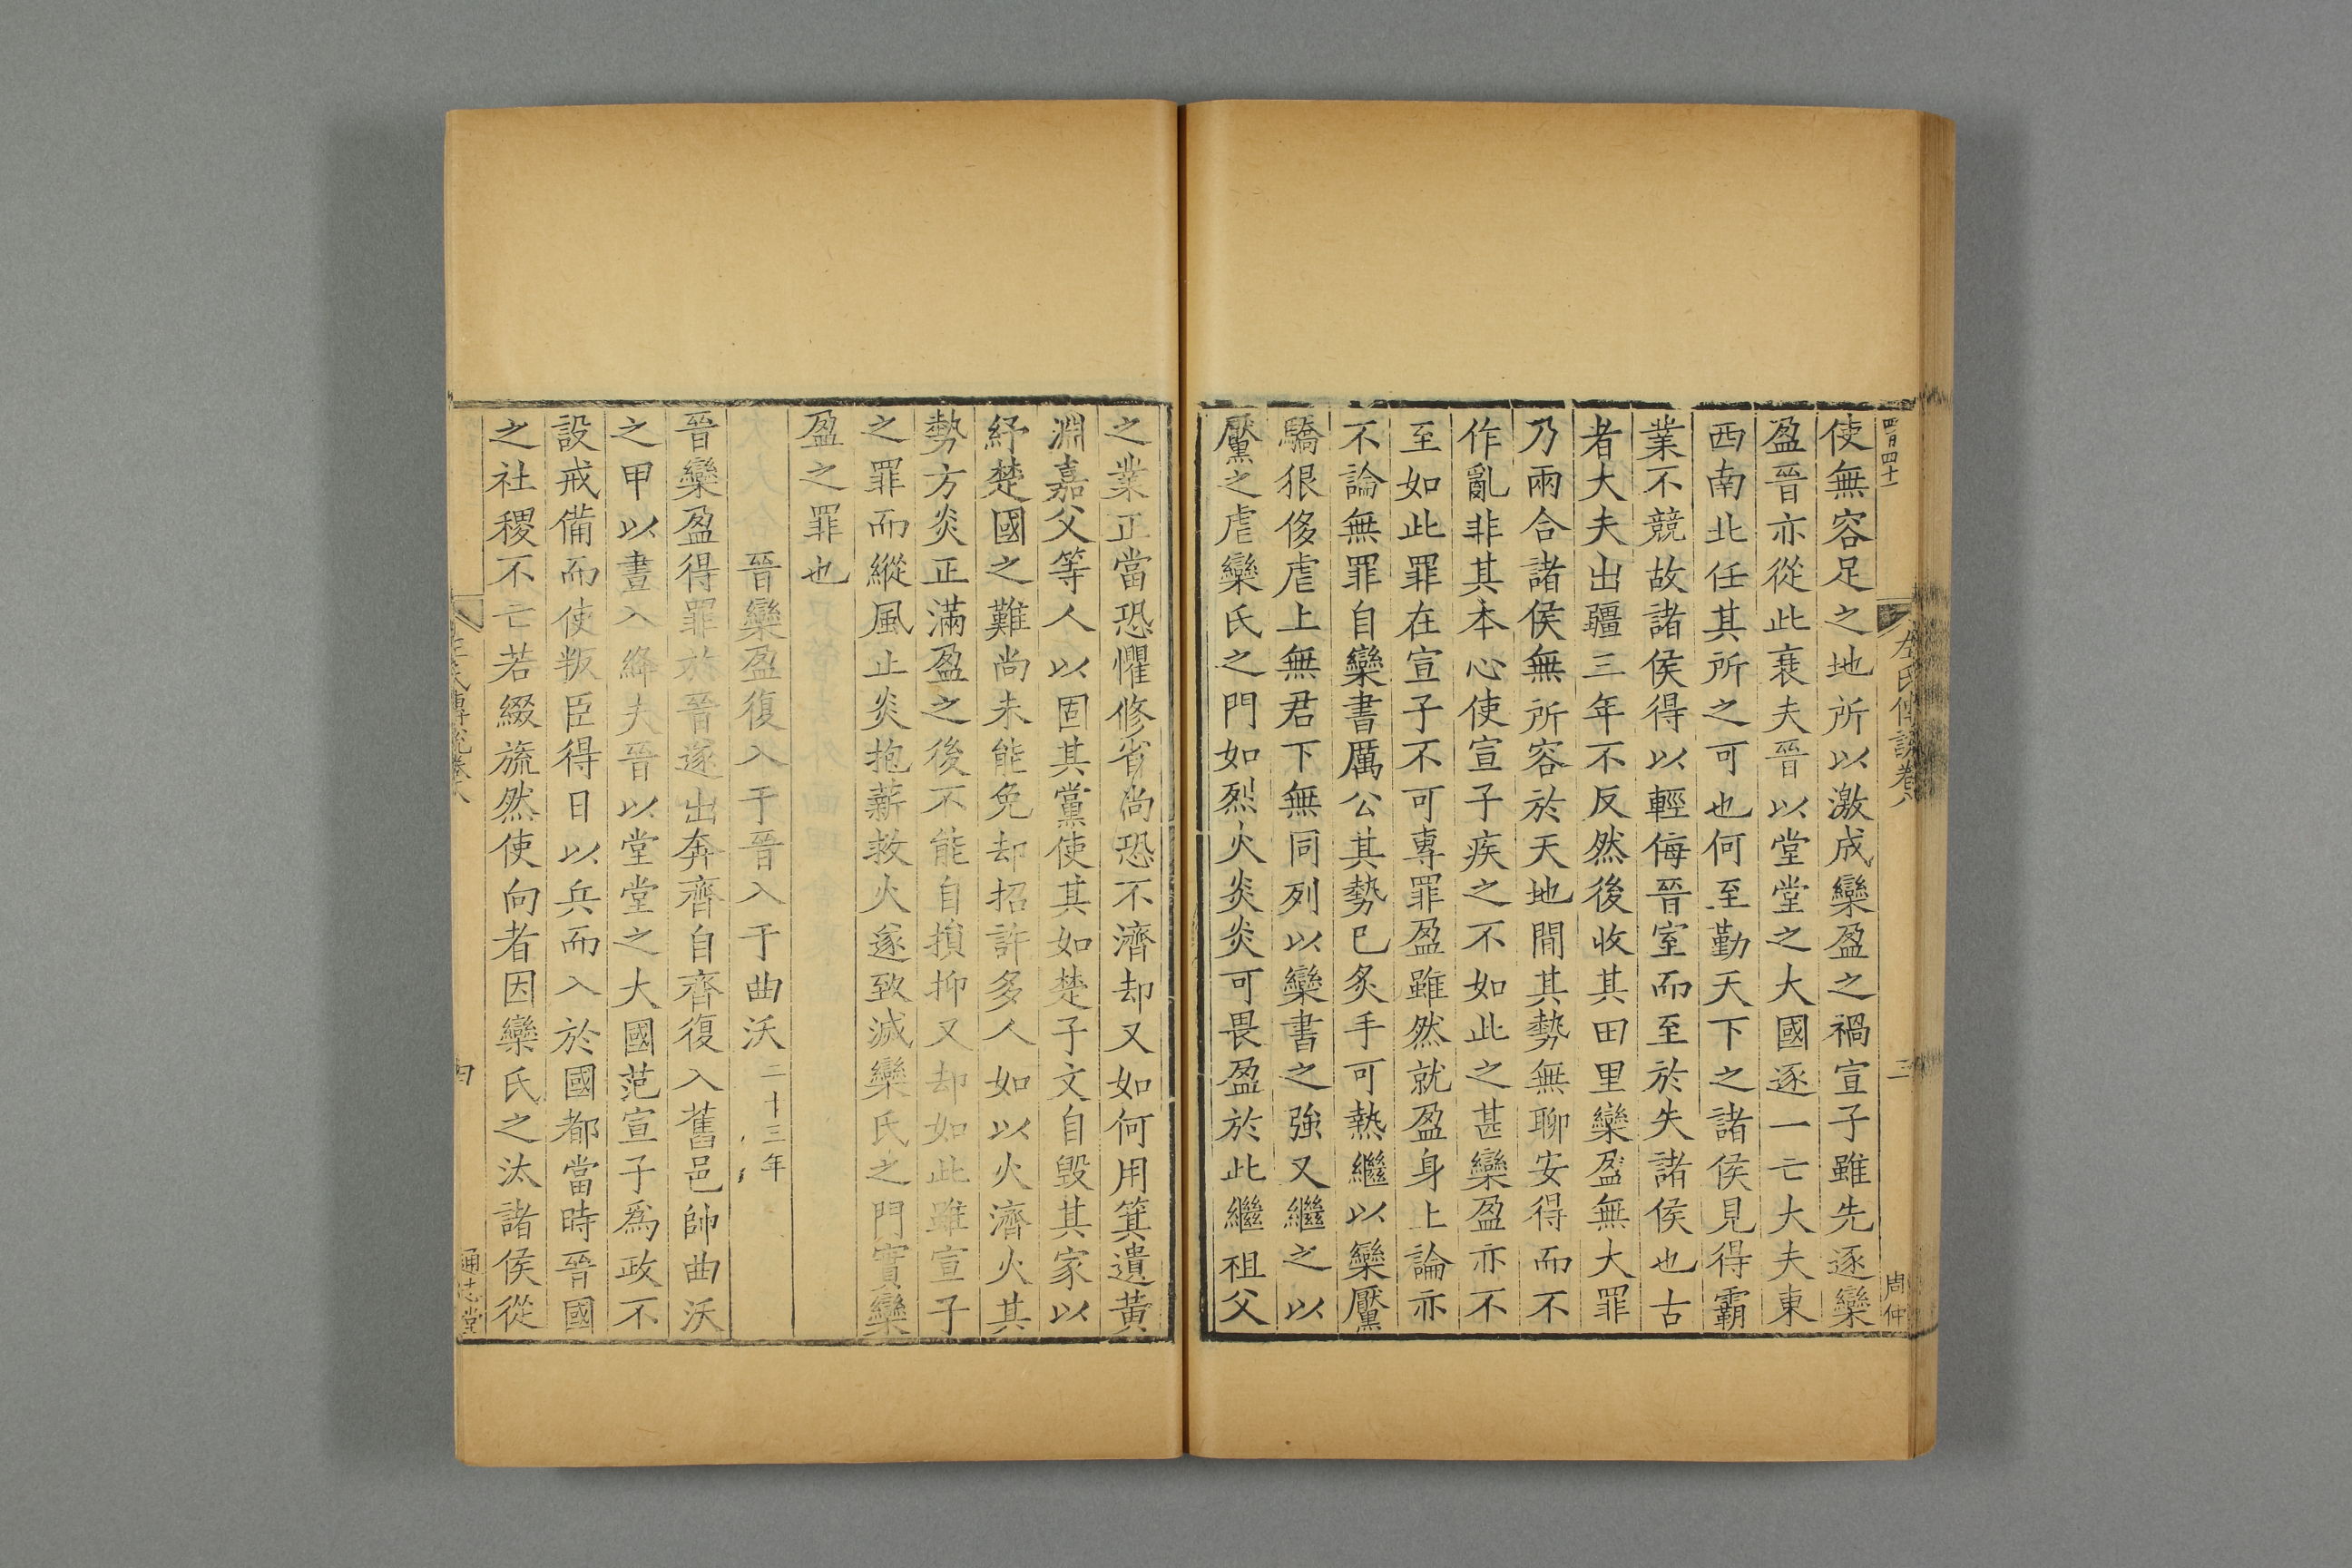 四百四十
左氏傳說卷八
三
周仲
使無容足之地所以激成欒盈之禍宣子雖先逐欒
盈晉亦從此衰夫晉以堂堂之大國逐一亡大夫東
西南北任其所之可也何至勤天下之諸侯見得霸
業不競故諸侯得以輕侮晉室而至於失諸侯也古
者大夫出疆三年不反然後收其田里欒盈無大罪
乃兩合諸侯無所容於天地間其勢無聊安得而不
作亂非其本心使宣子疾之不如此之甚欒盈亦不
至如此罪在宣子不可專罪盈雖然就盈身上論亦
不論無罪自欒書厲公其勢已炙手可熱繼以欒黶
驕狠侈虐上無君下無同列以欒書之強又繼之以
黶之虐欒氏之門如烈火炎炎可畏盈於此繼祖父
之業正當恐懼修省尚恐不濟却又如何用箕遺黃
淵嘉父等人以固其黨使其如楚子文自毀其家以
紓楚國之難尚未能免却招許多人如以火濟火其
勢方炎正滿盈之後不能自損抑又却如此雖宣子
之罪而縱風止炎抱薪救火遂致滅欒氏之門實欒
盈之罪也
晉欒盈復入于晉入于曲沃二十三年
晉欒盈得罪於晉遂出奔齊自齊復入舊邑帥曲沃
之甲以晝入絳夫晉以堂堂之大國范宣子爲政不
設戒備而使叛臣得日以兵而入於國都當時晉國
之社稷不亡若綴旒然使向者因欒氏之汰諸侯從
左氏傳說卷八
四
通志堂